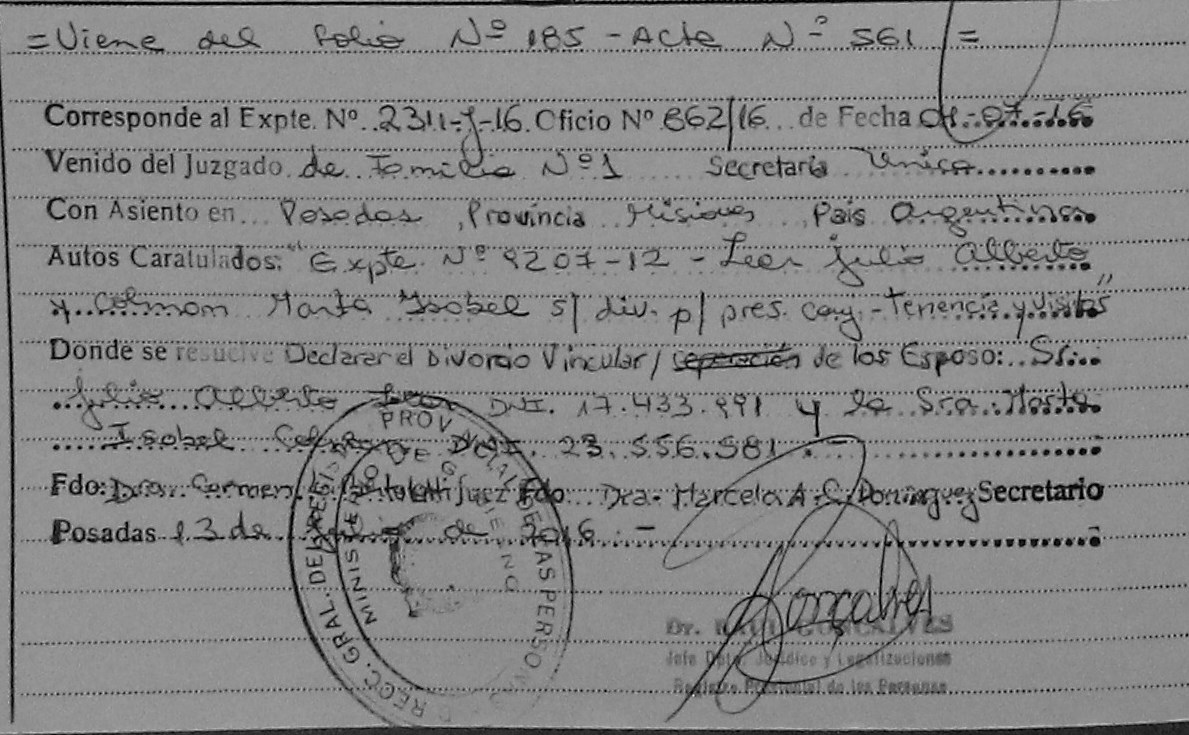 = Viene del Folio Nº 185 - Acta Nº 561 =
Corresponde al Expte. Nº 2311-J-16. Oficio Nº 862/16 de Fecha 01-07-16
Venido del Juzgado de Familia Nº 1 Secretaría Unica
Con Asiento en Posadas, Provincia Misiones País Argentina
Autos Caratulados: "Expte. Nº 9207-12 - Leer Julio Alberto
y Colman Marta Isabel s/ div. p/ pres. conj. - Tenencia y visitas"
Donde se resuelve Declarar el Divorcio Vincular / separación de los Esposo: Sr.
Julio Alberto DNI. 17.433.991 y la Sra. Marta
Isabel DNI. 23.556.581.-
Fdo: Dra. Carmen Juez Fdo: Dra. Marcela A. S. Dominguez Secretario
Posadas 13 de de 2016 -
Dr. RAUL GONCALVES
Jefe Dpto. Jurídico y Legalizaciones
Registro Provincial de las Personas